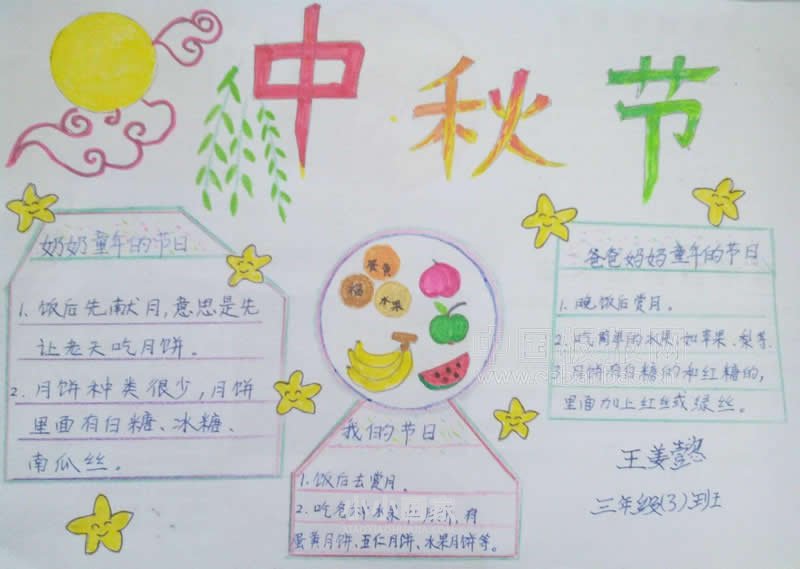 中秋节
奶奶童年的节日
1. 饭后先献月,意思是先
让老天吃月饼。
2. 月饼种类很少,月饼
里面有白糖、冰糖、
南瓜丝。
蛋黄
福
水果
我们的节日
1. 饭后去赏月。
2. 吃各种水果
蛋黄月饼、五仁月饼、水果月饼等。
爸爸妈妈童年的节日
1. 晚饭后赏月。
2. 吃简单的水果,如苹果、梨等.
3. 月饼有白糖的和红糖的,
里面加上红丝或绿丝。
王姜懿
三年级(3)班